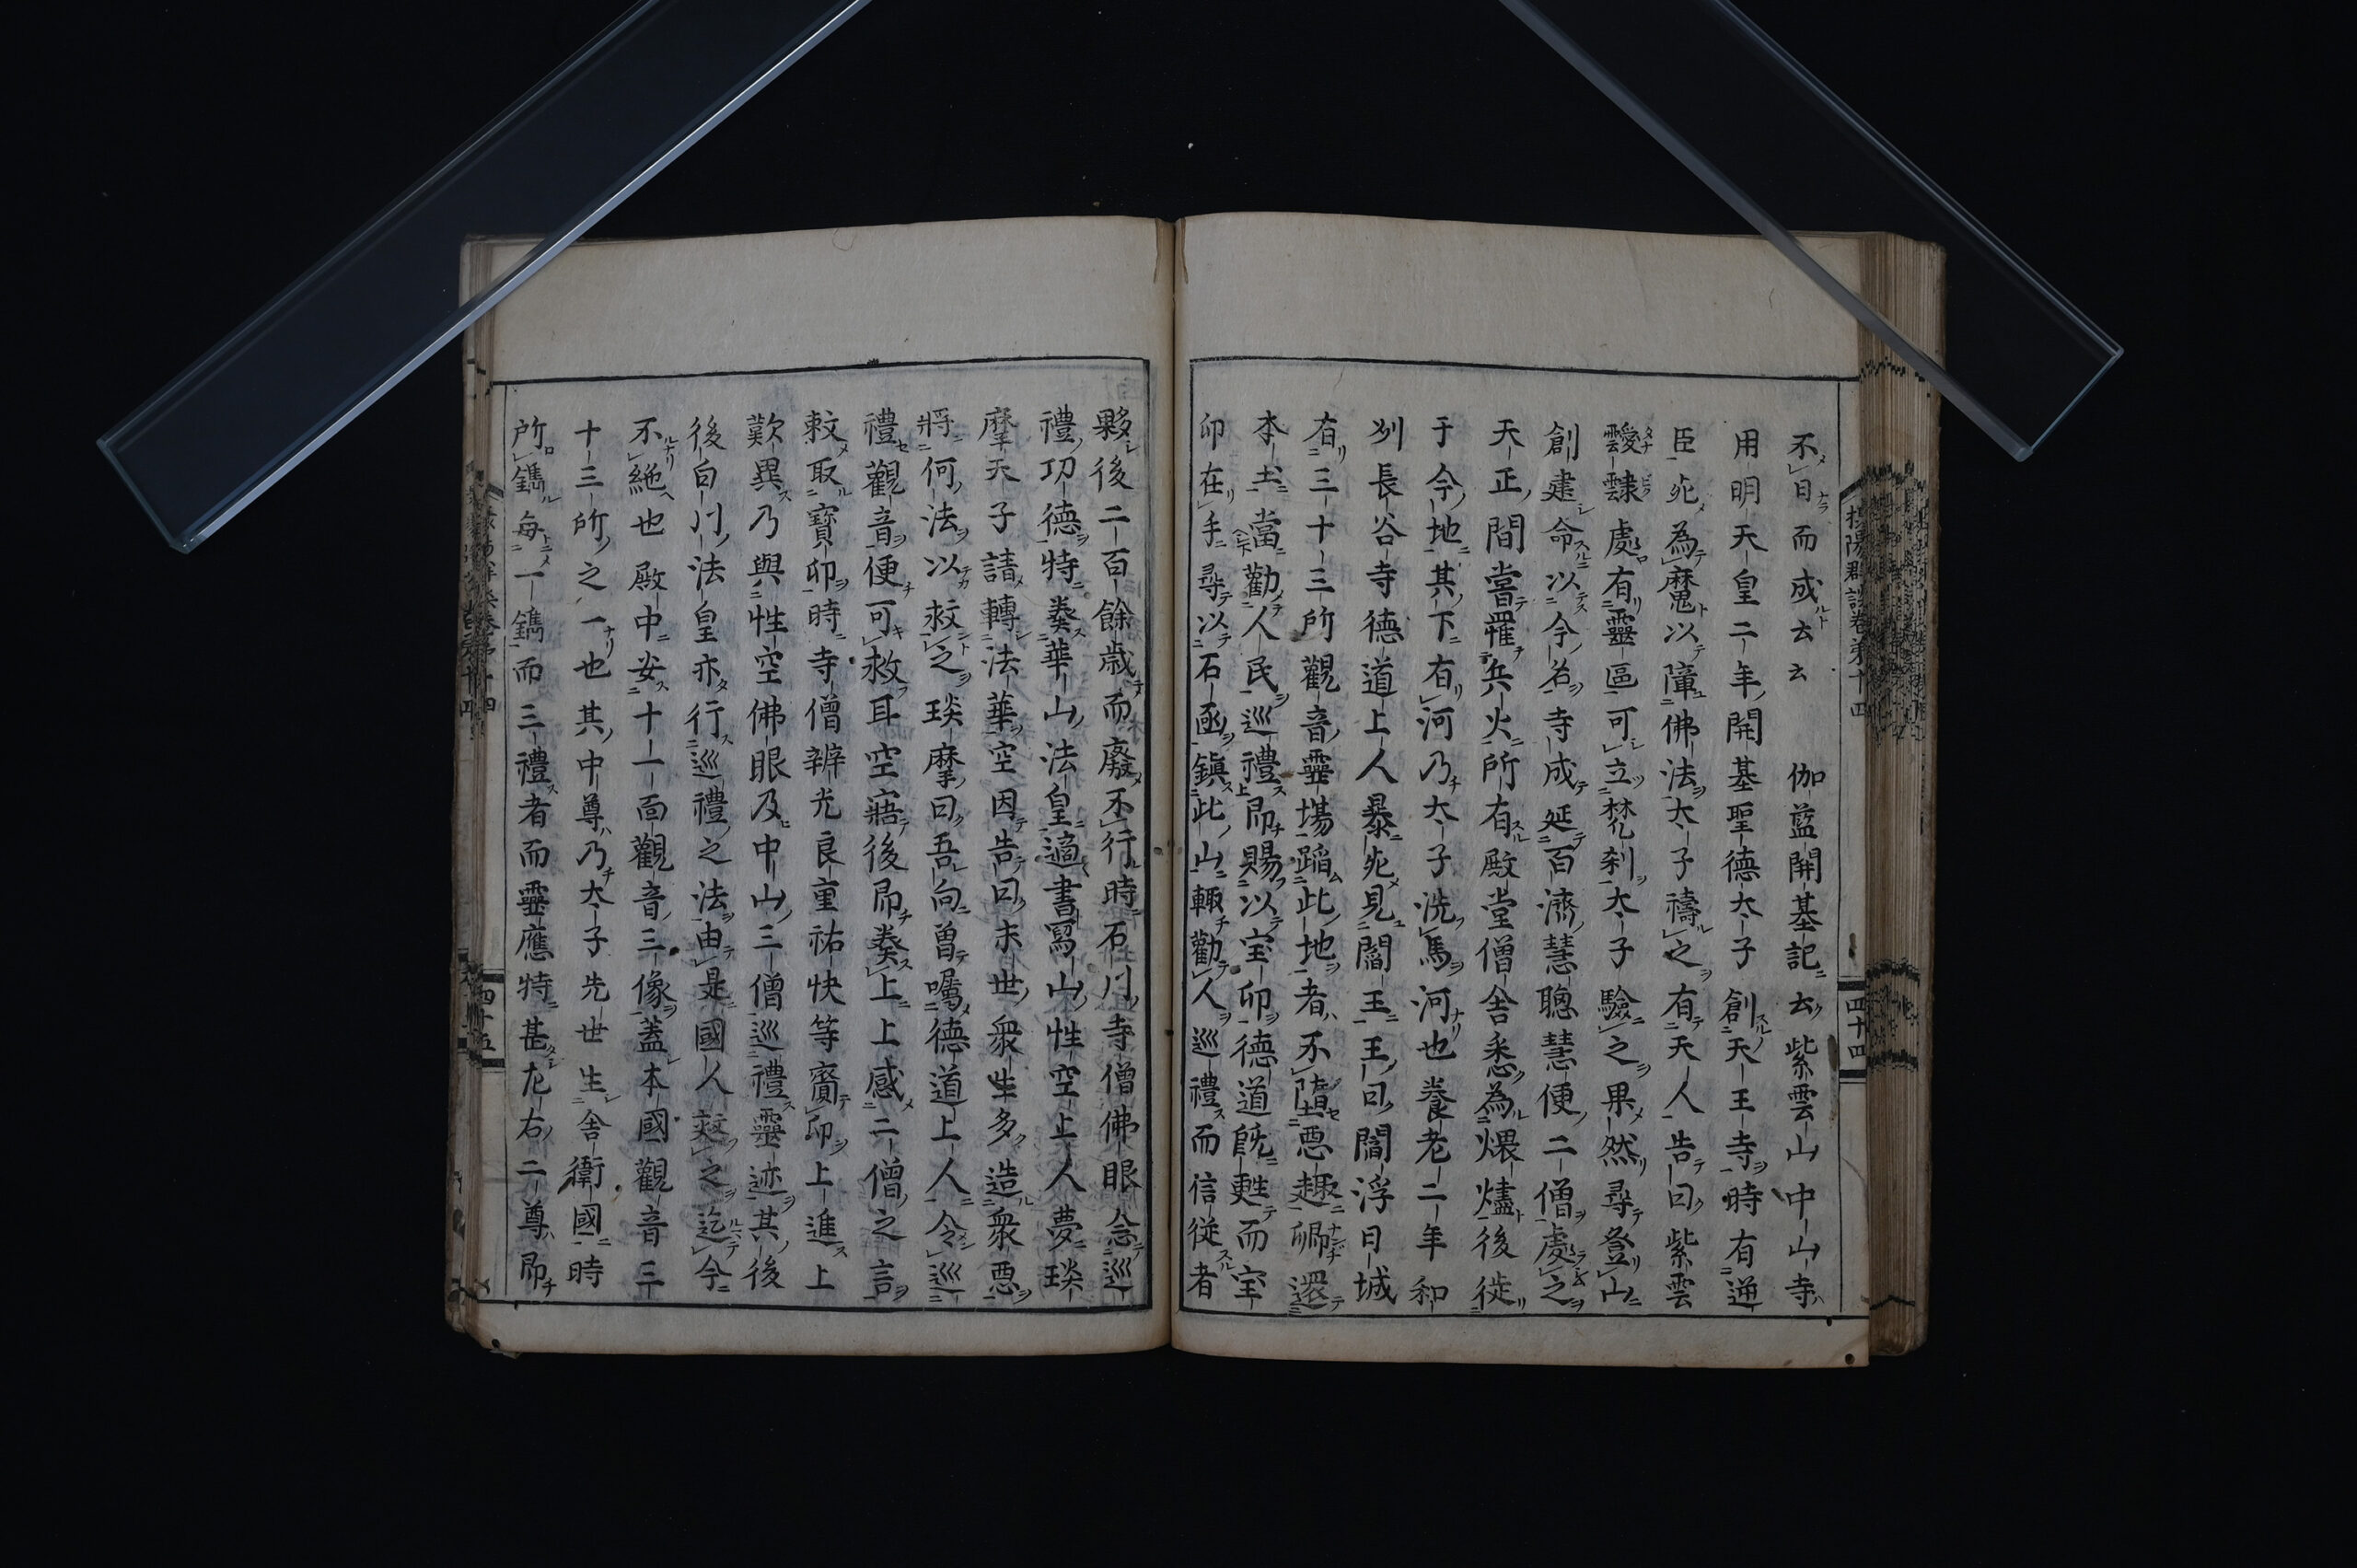 不日而成云云 伽藍開基記云紫雲山中山寺
用明天皇二年開基聖德太子創天王寺時有逆
臣死為魔以障佛法太子禱之有天人告曰紫雲
靉靆處有靈區可立梵刹太子驗之果然尋登山
創建命以今名寺成延百濟慧聰慧便二僧處之
天正間當罹兵火所有殿堂僧舍悉為煨燼後徙
于今地其下有河乃太子洗馬河也養老二年和
刕長谷寺德道上人暴死見閻王王曰閻浮日城
有三十三所觀音靈場蹈此地者不墮惡趣卿還
本土當勸人民巡禮即賜以宝印德道既甦而宝
印在手尋以石函鎮此山輙勸人巡禮而信從者
夥後二百餘歳而廢不行時石川寺僧佛眼念巡
禮功德特奏華山法皇適書寫山性空上人夢琰
摩天子請轉法華空因告曰末世衆生多造衆惡
將何法以救之琰摩曰吾向曽囑德道上人令巡
禮觀音便可救耳空寤後即奏上上感二僧之言
敕取寶印時寺僧辨光良重祐快等齎印上進上
歎異乃與性空佛眼及中山三僧巡禮靈迹其後
後白川法皇亦行巡禮之法由是國人效之迄今
不絶也殿中安十一面觀音三像蓋本國觀音三
十三所之一也其中尊乃太子先世生舎衛國時
所鐫每一鐫而三禮者而靈應特甚左右二尊即
攝陽群談卷第十四
四十四
四十五